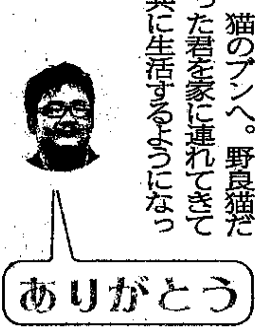 猫のブンへ。野良猫だ
った君を家に連れてきて
共に生活するようになっ
ありがとう